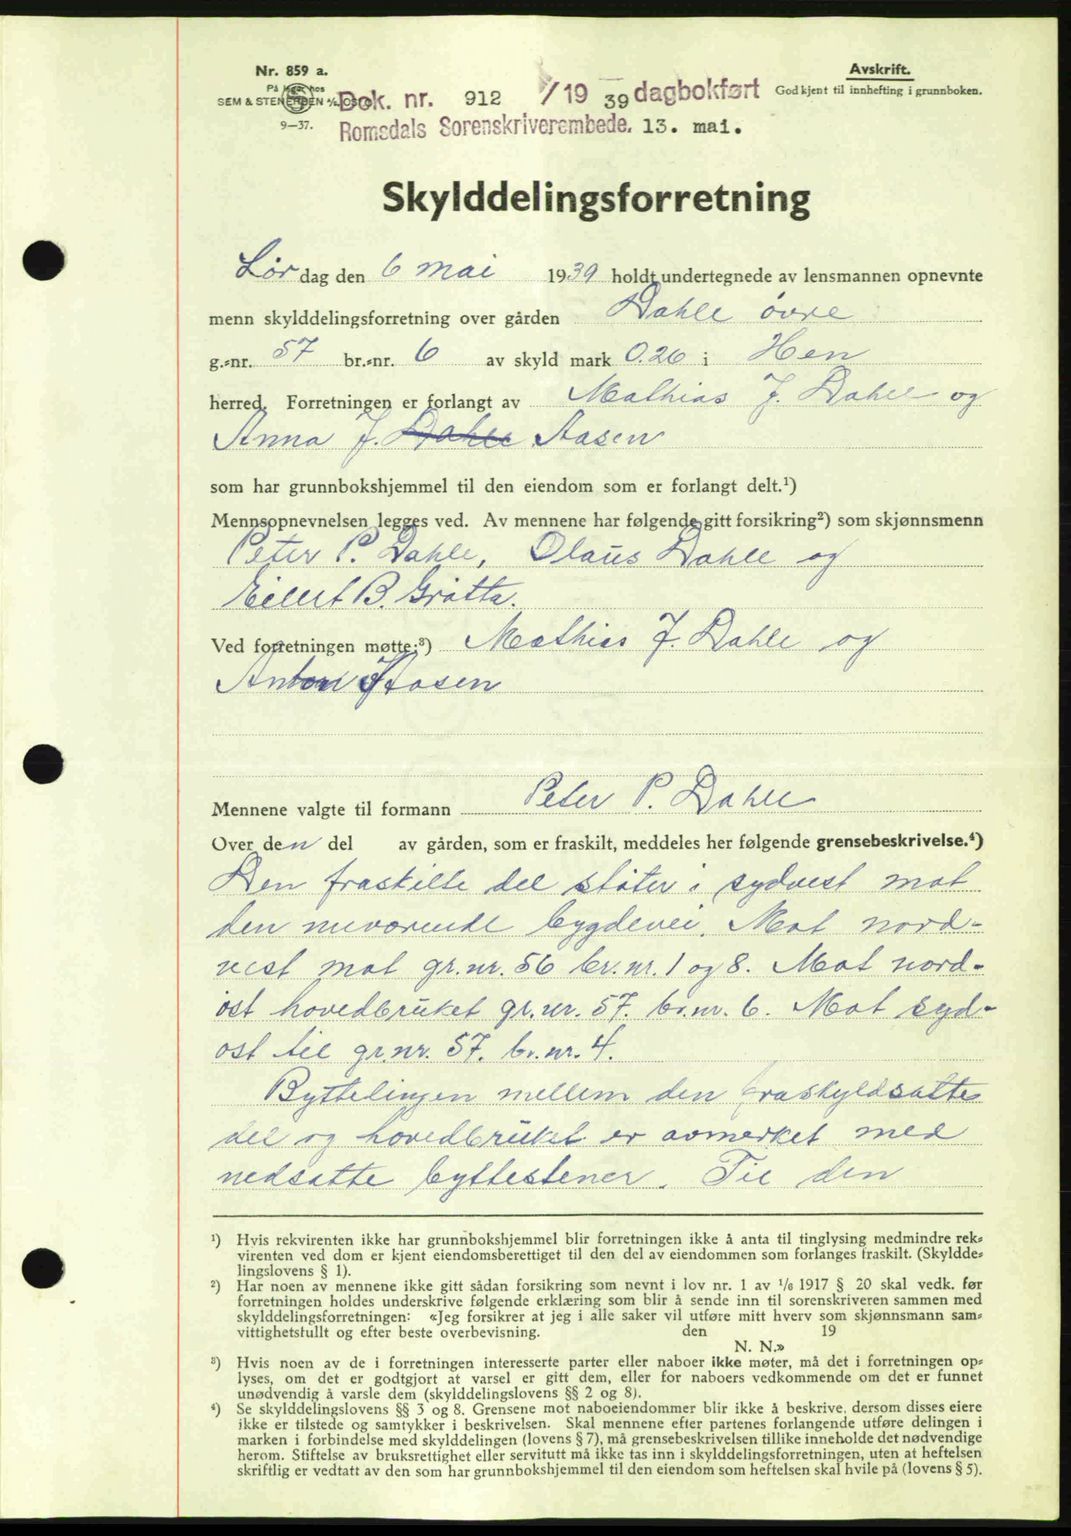 Nr. 859 a.
På lager hos
SEM & STENERSEN A/S, OSLO
9—37.
Dok. nr. 912 /19 39 dagbokført
Romsdals Sorenskriverembede. 13. mai.
Avskrift.
Godkjent til innhefting i grunnboken.
Skylddelingsforretning
Lør dag den 6 mai 1939 holdt undertegnede av lensmannen opnevnte
menn skylddelingsforretning over gården Dahle øvre
g.-nr. 57 br.-nr. 6 av skyld mark 0.26 i Hen
herred. Forretningen er forlangt av Mathias J. Dahle og
Anna J. Dahle Aasen
som har grunnbokshjemmel til den eiendom som er forlangt delt.¹)
Mennsopnevnelsen legges ved. Av mennene har følgende gitt forsikring²) som skjønnsmenn
Peter P. Dahle, Olaus Dahle og
Eilert B. Grøtta.
Ved forretningen møtte:³) Mathias J. Dahle og
Anton Aasen
Mennene valgte til formann Peter P. Dahle
Over den del av gården, som er fraskilt, meddeles her følgende grensebeskrivelse.⁴)
Den fraskilte del støter i sydvest mot
den nuværende bygdevei. Mot nord-
vest mot gr.nr. 56 br.nr. 1 og 8. Mot nord-
øst hovedbruket gr.nr. 57. br.nr. 6. Mot syd-
øst til gr.nr. 57. br.nr. 4.
Byttelinjen mellem den fraskyldsatte
del og hovedbruket er avmerket med
nedsatte byttestener. Til den
¹) Hvis rekvirenten ikke har grunnbokshjemmel blir forretningen ikke å anta til tinglysing medmindre rek-
virenten ved dom er kjent eiendomsberettiget til den del av eiendommen som forlanges fraskilt. (Skyldde-
lingslovens § 1).
²) Har noen av mennene ikke gitt sådan forsikring som nevnt i lov nr. 1 av 1/6 1917 § 20 skal vedk. før
forretningen holdes underskrive følgende erklæring som blir å sende inn til sorenskriveren sammen med
skylddelingsforretningen: «Jeg forsikrer at jeg i alle saker vil utføre mitt hverv som skjønnsmann sam-
vittighetsfullt og efter beste overbevisning. den 19
N. N.»
³) Hvis noen av de i forretningen interesserte parter eller naboer ikke møter, må det i forretningen op-
lyses, om det er godtgjort at varsel er gitt dem, eller for naboers vedkommende om det er funnet
unødvendig å varsle dem (skylddelingslovens §§ 2 og 8).
⁴) Se skylddelingslovens §§ 3 og 8. Grensene mot naboeiendommer blir ikke å beskrive, dersom disses eiere
ikke er tilstede og samtykker i beskrivelsen. Skal mennene efter partenes forlangende utføre delingen i
marken i forbindelse med skylddelingen (lovens § 7), må grensebeskrivelsen tillike inneholde det nødvendige
herom. Stiftelse av bruksrettighet eller servitutt må ikke tas inn i skylddelingsforretningen, uten at heftelsen
skriftlig er vedtatt av den som har grunnbokshjemmel til den eiendom som heftelsen skal hvile på (lovens § 5).